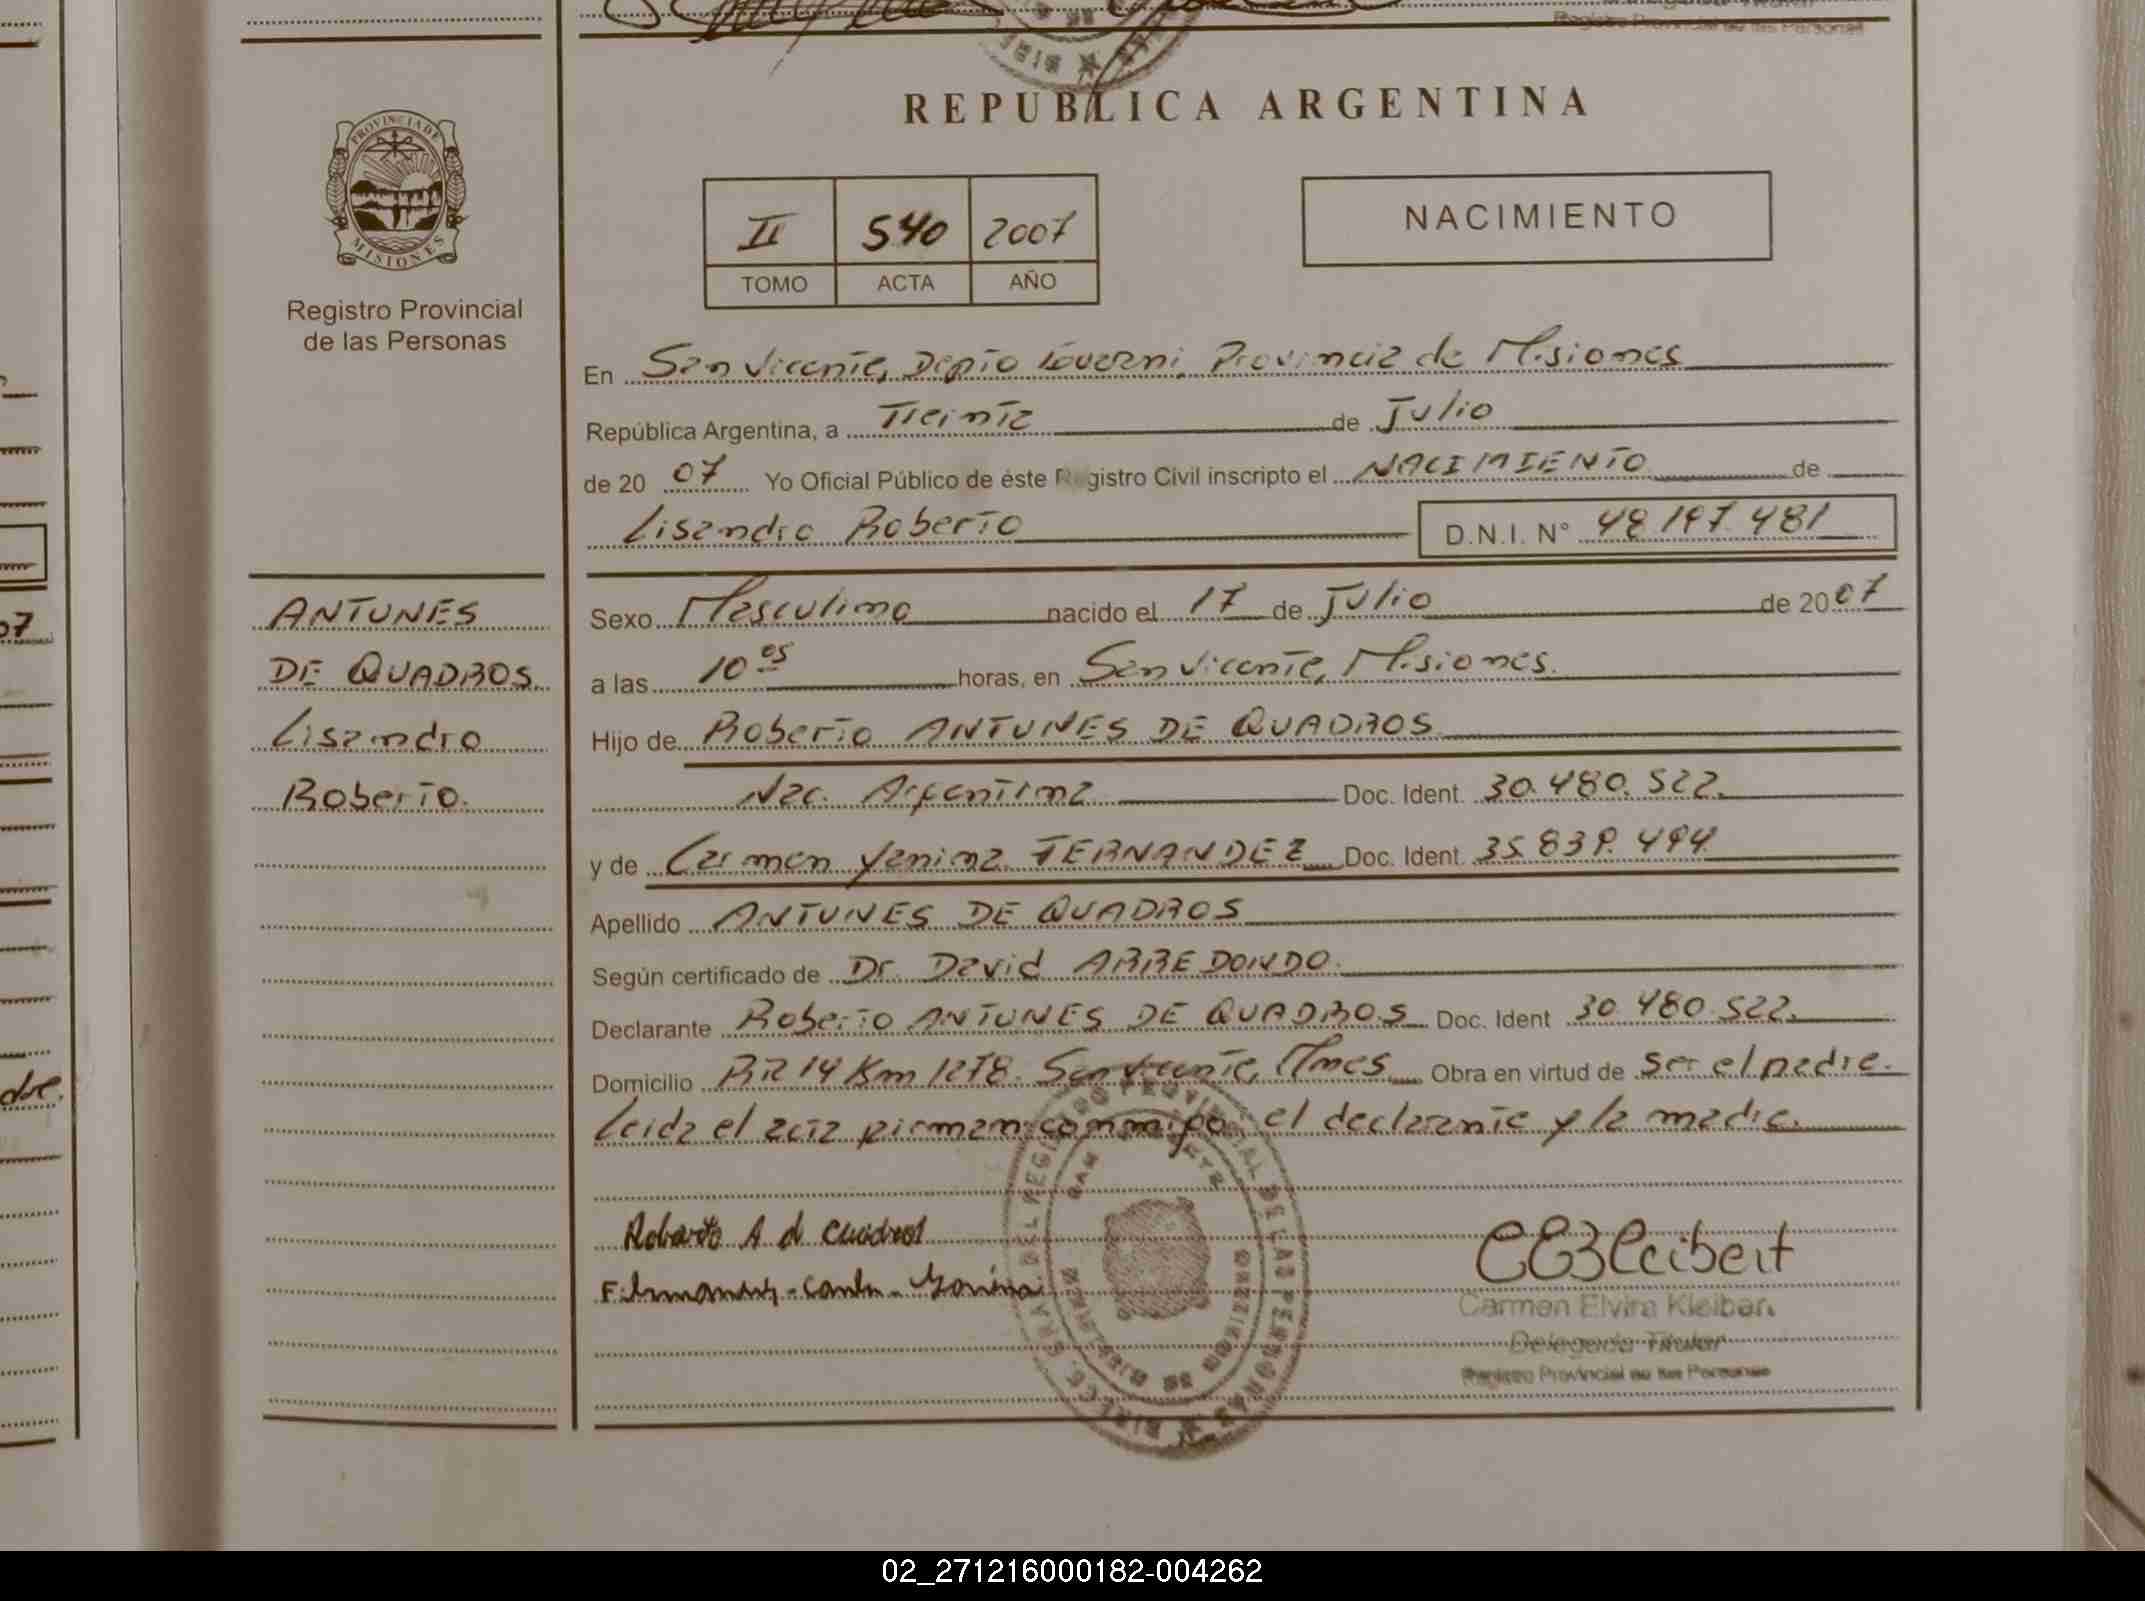 REPUBLICA ARGENTINA
PROVINCIA DE MISIONES
Registro Provincial
de las Personas
II 540 2007
TOMO ACTA AÑO
NACIMIENTO
En San Vicente, Dpto Guaraní, Provincia de Misiones
República Argentina, a Treinta de Julio
de 20 07 Yo Oficial Público de éste Registro Civil inscripto el NACIMIENTO de
Lisandro Roberto D.N.I. N° 48 197 481
ANTUNES
DE QUADROS
Lisandro
Roberto.
Sexo Masculino nacido el 17 de Julio de 20 07
a las 10 05 horas, en San Vicente, Misiones.
Hijo de Roberto ANTUNES DE QUADROS
Nac. Argentina Doc. Ident. 30.480.522.
y de Carmen Yanina FERNANDEZ Doc. Ident. 35.839.494
Apellido ANTUNES DE QUADROS
Según certificado de Dr. David ARREDONDO.
Declarante Roberto ANTUNES DE QUADROS Doc. Ident 30 480 522.
Domicilio RR 14 Km 1278. San Vicente, Mnes Obra en virtud de ser el padre.
Leida el acta firman conmigo, el declarante y la madre.
Roberto A d Cuadros
Carmen Elvira Kleiber
Delegada Titular
Registro Provincial de las Personas
02_271216000182-004262